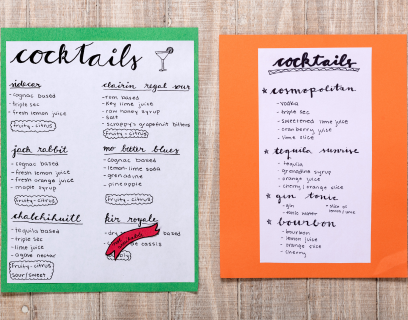 cocktails
sidecar
- cognac based
- triple sec
- fresh lemon juice
fruity-citrus
clairin regal sour
- rum based
- key lime juice
- raw honey syrup
- salt
- scrappy's grapefruit bitters
fruity-citrus
jack rabbit
- cognac based
- fresh lemon juice
- fresh orange juice
- maple syrup
fruity-citrus
mo better blues
- cognac based
- lemon-lime soda
- grenadine
- pineapple
fruity-citrus
chalchihuitl
- tequila based
- triple sec
- lime juice
- agave nectar
fruity-citrus
sour/sweet
kir royale
- dry based
- de cassis
cocktails
* cosmopolitan
- vodka
- triple sec
- sweetened lime juice
- cranberry juice
- lime slice
* tequila sunrise
- tequila
- grenadine syrup
- orange juice
- cherry/orange slice
* gin tonic
- gin
- tonic water
- slice of lemon/lime
* bourbon
- bourbon
- lemon juice
- orange slice
- cherry